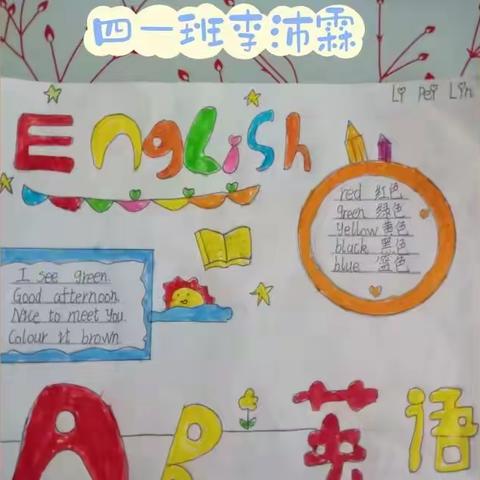 四一班李沛霖
Li Pei Lin
English
red 红色
green 绿色
yellow 黄色
black 黑色
blue 蓝色
I see green.
Good afternoon.
Nice to meet you.
Colour it brown.
AB 英语